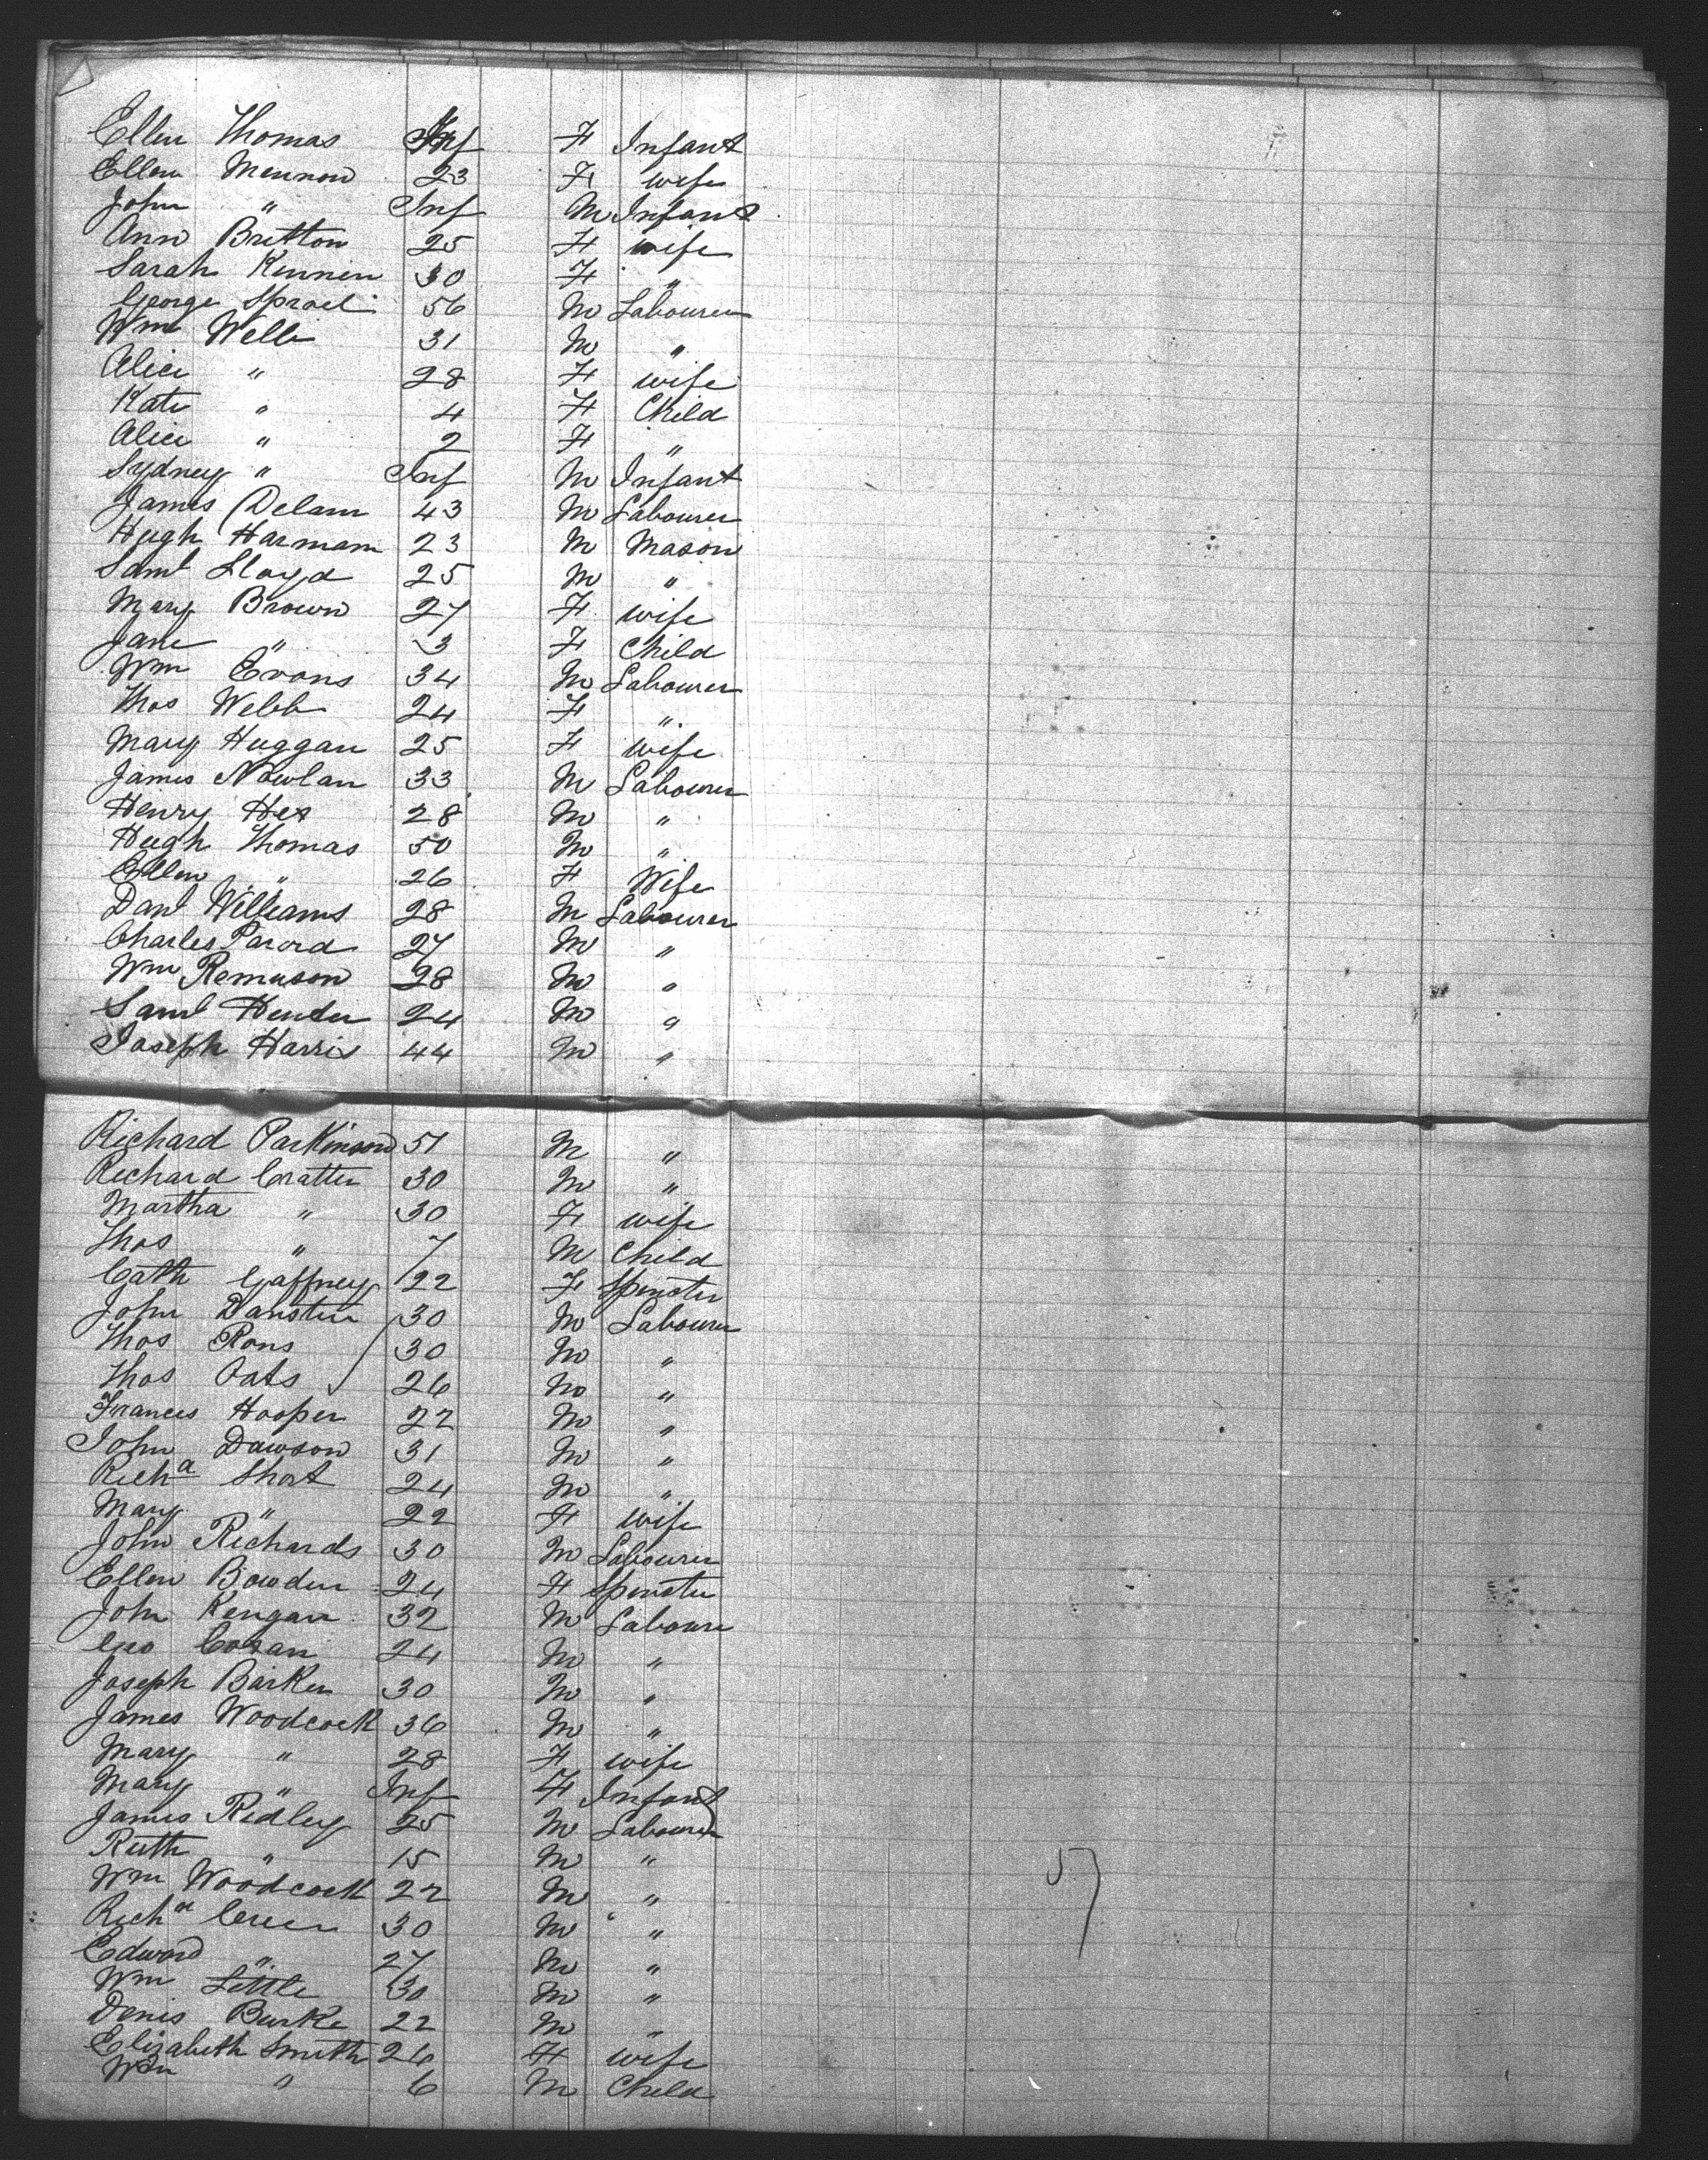 Ellen Thomas Inf F Infant
Ellen Mennon 23 F wife
John " Inf M Infant
Ann Britton 25 F wife
Sarah Kennen 30 F "
George 56 M Labourer
Wm Wells 31 M "
Alice " 28 F wife
Kate " 4 F Child
Alice " 2 F "
Sydney " Inf M Infant
James Delam 43 M Labourer
Hugh Harmam 23 M Mason
Saml Lloyd 25 M "
Mary Brown 27 F wife
Jane " 3 F Child
Wm Evans 34 M Labourer
Thos Webb 24 F "
Mary Huggan 25 F wife
James Nowlan 33 M Labourer
Henry Hex 28 M "
Hugh Thomas 50 M "
Ellen " 26 F Wife
Danl Williams 28 M Labourer
Charles Parord 27 M "
Wm Remuson 28 M "
Saml Henter 24 M "
Joseph Harris 44 M "
Richard Parkinson 51 M "
Richard Cratter 30 M "
Martha " 30 F wife
Thos " 7 M Child
Cath Gaffney 22 F Spinster
John Danster 30 M Labourer
Thos Rons 30 M "
Thos Oats 26 M "
Frances Hooper 22 M "
John Dawson 31 M "
Richd Short 24 M "
Mary " 22 F wife
John Richards 30 M Labourer
Ellen Bowden 24 F Spinster
John Kengan 32 M Labourer
Geo Cozan 24 M "
Joseph Barker 30 M "
James Woodcock 36 M "
Mary " 28 F wife
Mary " Inf F Infant
James Ridley 25 M Labourer
Ruth " 15 M "
Wm Woodcock 22 M "
Richd Creer 30 M "
Edward " 27 M "
Wm Little 30 M "
Denis Burke 22 M "
Elizabeth Smith 26 F wife
Wm " 6 M Child
57